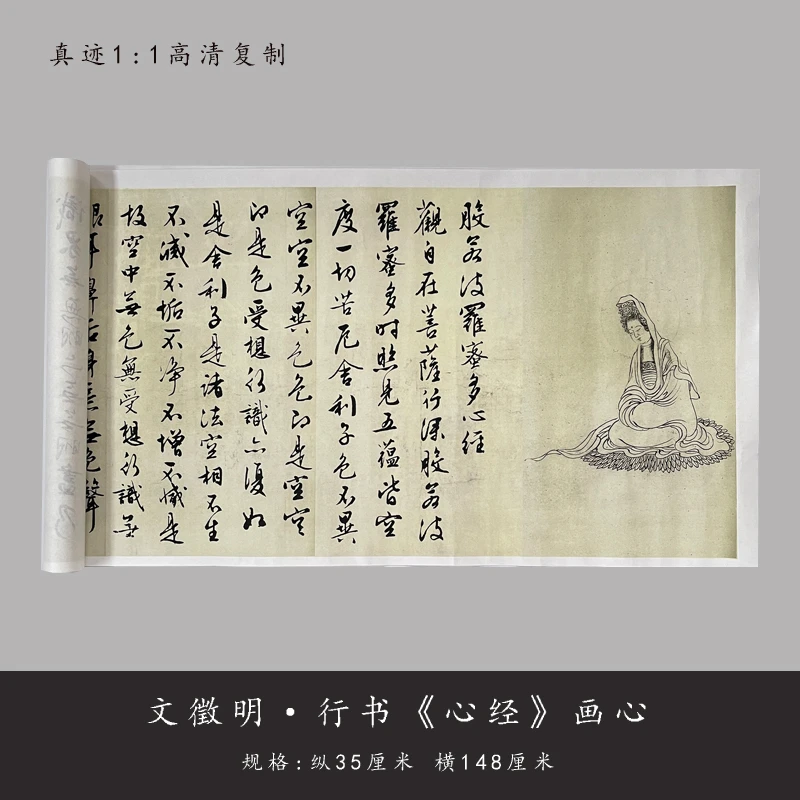 真迹1:1高清复制
般若波羅蜜多心經
觀自在菩薩行深般若波
羅蜜多時照見五蘊皆空
度一切苦厄舍利子色不異
空空不異色色即是空空
即是色受想行識亦復如
是舍利子是諸法空相不生
不滅不垢不淨不增不減是
故空中無色無受想行識無
眼耳鼻舌身意無色聲
文徵明·行书《心经》画心
规格:纵35厘米 横148厘米